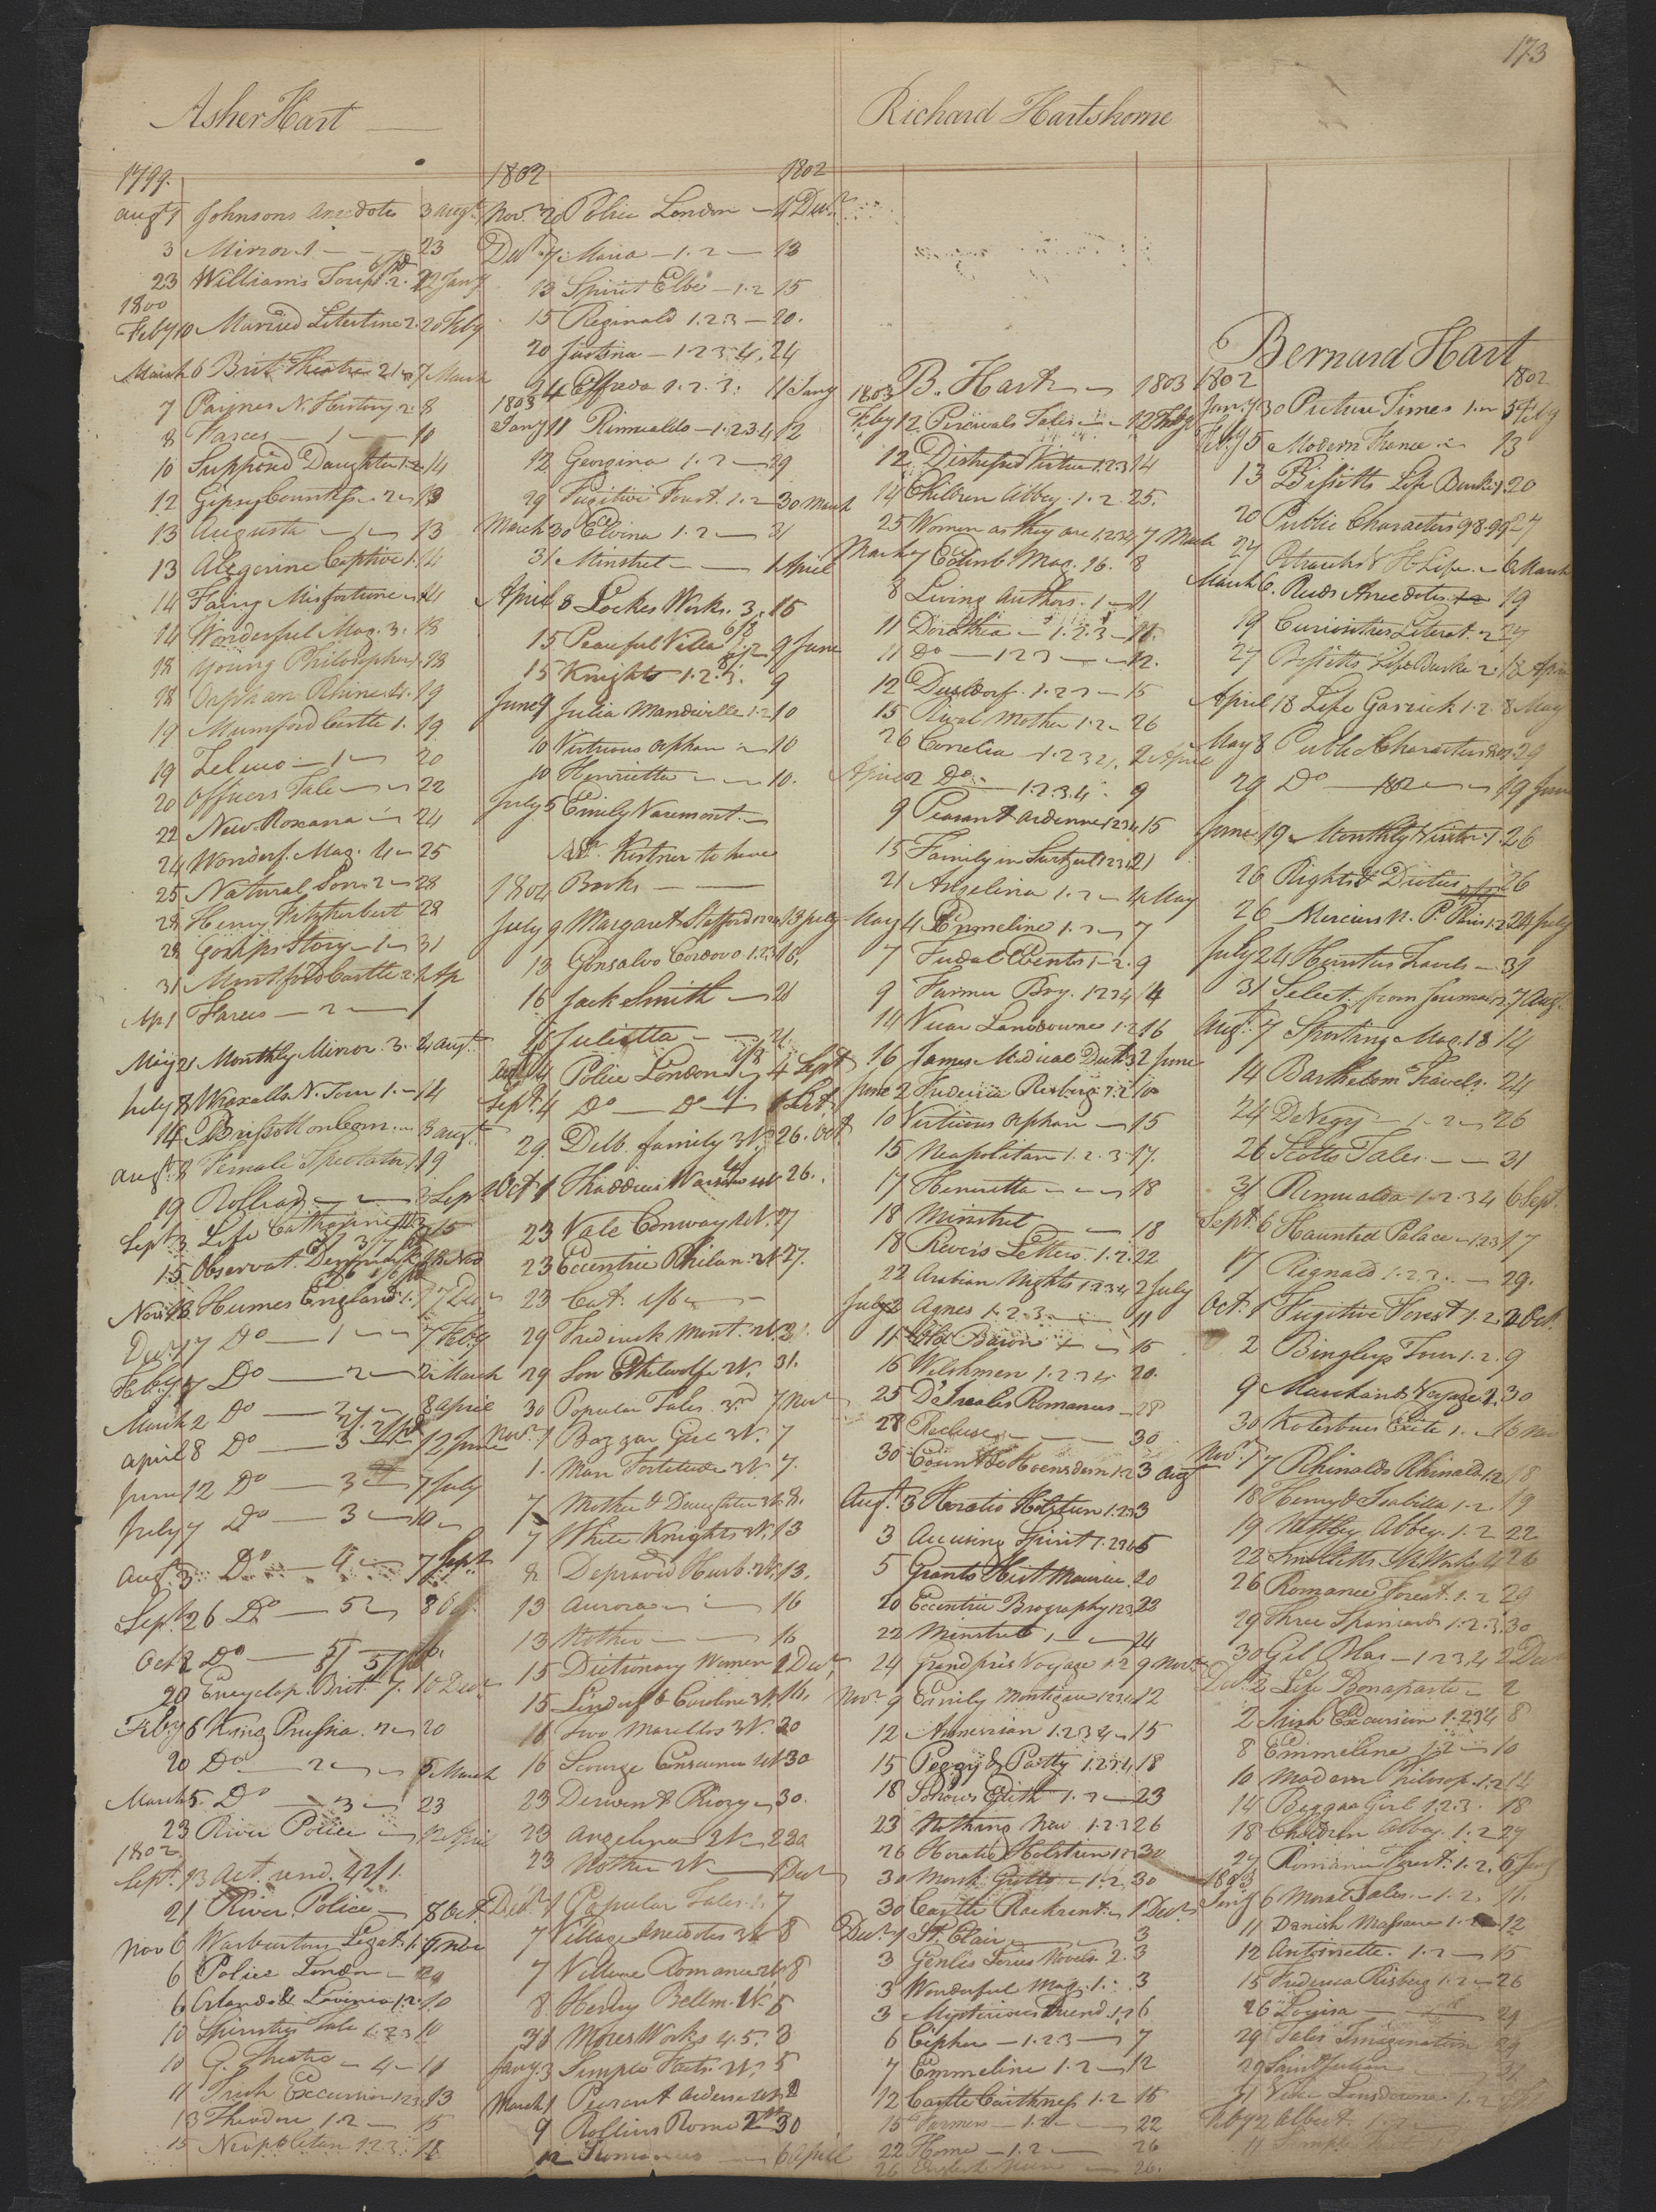 173
Asher Hart
1799.
Augt 1 Johnsons Anecdotes 3 Augt
3 Mirror 1 23
23 Williams 2. 22 Jany
1800
Feby 10 Married Libertine 2. 20 Feby
March 6 Brit. Theatre 21 7 March
7 Paynes N. History 2. 8
8 Farces 1 10
10 Supposed Daughter 1.2 14
12 Gipsy Countess 2 13
13 Augusta 1 13
13 Algerine Captive 1. 14
14 Fairy Misfortune 14
14 Wonderful Mag. 3. 18
18 Young Philosopher 1. 18
18 Orphan Rhine. 4. 19
19 Mumford Castle 1. 19
19 Zeluco 1 20
20 Officers Tale 22
22 New Roxana 24
24 Wonderf. Mag. 4 25
25 Natural Son 2 28
28 Henry Fitzherbert 28
28 Gossips Story 1 31
31 Montford Castle 2. 1 Ap
Ap 1 Farces 2 1
May 21 Monthly Mirror 3. 2 Augt
July 8 Wraxalls N. Tour 1. 14
14 Brissott on Com. 8 Augt
Augt 8 Female Spectator 1. 19
19 Rolliad 3 Sept
Sept 3 Life Catharine 15
15 Observat. Denmark
Nov 18 Humes England 1. 17 Decr
Decr 17 Do 1 7 Feby
Feby 7 Do 2 2 March
March 2 Do 2 8 April
April 8 Do 3 12 June
June 12 Do 3 7 July
July 7 Do 3 10
Augt 3 Do 4 7 Sept
Sept 26 Do 5 8 Oct
Oct 2 Do 5
20 Encyclop. Brit 7. 10 Decr
Feby 6 King Prussia. 20
20 Do 2 5 March
March 5 Do 3 23
23 River Police 12 April
1802
Sept. 13 Act. rend. 22/1.
21 River Police 8 Oct
Nov 6 Warburtons Legat. 1. 9 Nov
6 Police London 29
6 Orlando & Lavinia 1.2. 10
10 Spinsters Tale 1.2.3 10
10 G. Theatre 4 11
11 Irish Excursion 1.2.3 13
13 Theodore 1.2 15
15 Neapolitan 1.2.3. 18
1802 1802
Novr 20 Police London 4 Decr
Decr 7 Maria 1.2 13
13 Spirit Elbe 1.2 15
15 Reginald 1.2.3 20.
20 Justina 1.2.3.4. 24
24 Elfreda 1.2.3. 11 Jany
1803
Jany 11 Rinualdo 1.2.3.4 12
12 Georgina 1.2 29
29 Fugitive Forest. 1.2 30 March
March 30 Elvina 1.2 31
31 Minstrel 1 April
April 8 Lockes Works. 3. 15
15 Peaceful Villa 1.2 9 June
15 Knights 1.2.3. 9
June 9 Julia Mandeville 1.2 10
10 Virtuous Orphan 10
10 Henrietta 10.
July 5 Emily Varemont.
Mr. Kirtner to have
1804 Books
July 9 Margaret Stafford 13 July
13 Gonsalvo Cordova 1.2.3 16.
16 Jack Smith 21
16 Julietta 21
Augt 14 Police London 4 Sept
Sept. 4 Do Do 1 Oct
29. Delb. family 3V. 26. Oct
Oct 1 Thaddeus Warsaw 4V 26.
23 Vale Conway 4V. 27
23 Eccentric Philan. 3V 27.
23 Cat. 1/6
29 Frederick Mont. 2V. 31.
29 Son Ethelwolfe 2V. 31.
30 Popular Tales. 3rd 7 Novr
Novr 1 Beggar Girl 3V. 7
1. Man Fortitude 3V 7.
7 Mother & Daughter 3V 8.
7 White Knights 3V. 13
8 Depraved Husb. 2V. 13.
13 Aurora 16
13 Mother 16
15 Dictionary Women 1 Decr
15 Lindorf & Caroline 3V. 16.
16 Two Marillos 3V. 20
16 Scourge Conscience 4V 30
23 Derwent Priory 30.
23 Angelina 2V
23 Mother 2V 1 Decr
Decr 1 Popular Tales 1. 7
7 Village Anecdotes 3V 8
7 Village Romance 2V 8
8 Henley Bellm. 1V.
31 Mores Works 4.5. 3
Jany 3 Simple Facts. 2V. 5
March 1 Peasant Ardenne 4V
9 Rollins Rome 30
12 Romances 6 April
Richard Hartshorne
1803 B. Hart 1803
Feby 12 Percivals Tales 12 Feby
12 Distressed Virtue 1.2.3 14
14 Children Abbey. 1.2. 25.
25 Women as they are 1.2.3.4 7 March
March 7 Edinb Mag. 96. 8
8 Living Authors. 1 11
11 Dorothea 1.2.3 11.
11 Do 1.2.3 12.
12 Dusseldorf. 1.2.3 15
15 Rural Mother 1.2 26
26 Camelia 1.2.3.4. 2 April
April 2 Do 1.2.3.4. 9
9 Peasant Ardenne 1.2.3.4 15
15 Family in Switzerl 1.2.3.4 21
21 Angelina 1.2 4 May
May 4 Emmeline 1.2 7
7 Feudal Events 1.2. 9
9 Farmer Boy. 1.2.3.4 14
14 Vicar Lansdowne 1.2 16
16 James Medical Dict. 3 2 June
June 2 Frederica Risberg 1.2 10
10 Virtuous Orphan 15
15 Neapolitan 1.2.3 17.
17 Henrietta 18
18 Minstrel 18
18 Reveris Letters 1.2. 22
22 Arabian Nights 1.2.3.4 2 July
July 2 Agnes 1.2.3 11
11 Old Baron 15
16 Welshmen 1.2.3.4. 20.
25 De Sales Romances 28
28 Recluse 30
30 Count de Hoensdern 1.2 3 Augt
Augt 3 Horatio Holstein 1.2.3 3
3 Accusing Spirit 1.2.3.4 5
5 Grants Hist Maurice. 20
20 Eccentric Biography 1.2.3 22
22 Minstrel 1 24
24 Grandpres Voyage 1.2 9 Novr
Novr 9 Emily Montague 1.2.3.4 12
12 Annessian 1.2.3.4 15
15 Peggy & Patty 1.2.3.4 18
18 Edith 1.2 23
23 Nothing New 1.2.3 26
26 Horatio Holstein 1.2 30
30 Monk Grotto 1.2 30
30 Castle Rackrent 1 Decr
Decr 1 St. Clair 3
3 Genlis Novels. 2. 3
3 Wonderful Mag. 1. 3
3 Mysterious Friend. 1.2 6
6 Cipher 1.2.3 7
7 Emmeline 1.2 12
12 Castle Caithness 1.2 15
15 Farmers 1.2 22
22 Home 1.2 26
26 26.
6 Bernard Hart
1802 1802
Jany 30 Picture Times 1. 5 Feby
Feby 5 Modern France 13
13 Bissetts Life Burke 1. 20
20 Public Characters 98.99 27
27 Petrarchs Life 6 March
March 6. Reids Anecdotes 19
19 Curiosities Literat. 2 27
27 Bissetts Life Burke 2. 18 April
April 18 Life Garrick 1.2. 8 May
May 8 Public Characters 29
29 Do 1802 19 June
June 19 Monthly Visitor 1. 26
26 Rights & Duties 26
26 Merciers N. P. Paris 1.2 24 July
July 24 Hunters Travels 31
31 Select. from Journals 7 Augt
Augt 7 Sporting Mag. 18 14
14 Barthelem. Travels. 24
24 De Vegy 1.2 26
26 Scotts Tales 31
31 Rimualda 1.2.3.4 6 Sept.
Sept. 6 Haunted Palace 1.2.3 17
17 Riginald 1.2.3. 29.
Oct. 1 Fugitive Forest 1.2. 2 Oct.
2 Bingleys Tour 1.2. 9
9 Marchands Voyage 2. 30
30 Kotzebues Exile 1. 16 Nov
Novr 17 Rhinalds Rhinald 1.2 18
18 Henry & Isabilla 1.2 19
19 Nettley Abbey. 1.2 22
22 Smolletts Works 4 26
26 Romance Forest. 1.2 29
29 Three Spaniards 1.2.3. 30
30 Gil Blas 1.2.3.4 2 Decr
Decr 2 Life Bonaparte 2
2 Irish Excursion 1.2.3.4 8
8 Emmeline 1.2 10
10 Modern Philosop. 1.2 14
14 Beggar Girl 1.2.3. 18
18 Children Abbey. 1.2 27
27 Romance Forest. 1.2. 6 Jany
1803
Jany 6 Moral Tales. 1.2. 11.
11 Danish Massacre 1. 12
12 Antoinette. 1.2 15
15 Frederica Risberg 1.2 26
26 Louisa 29
29 Tales Imagination 29
29 Saint Julian 31
31 Vicar Lansdowne. 1.2
Feby 2 Albert. 1.2